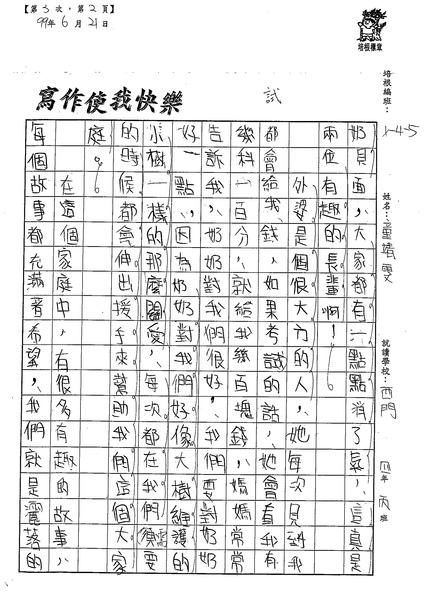 【第3次,第2頁】
99年6月21日
培根標章
寫作使我快樂
試
培根編班:
1-4-5
姓名:
童靖雯
就讀學校:
西門
四年丙班
奶面,大家都有一點點消了氣,這真是
兩位有趣的長輩啊!
外婆是個很大方的人,她每次見到我
都會給我錢,如果考試的話,她會看我有
幾科一百分,就給我幾百塊錢,媽媽常常
告訴我,奶奶對我們很好,我們要對奶奶
好一點,因為奶奶對我們好,像大樹維護
小樹一樣的那麼關愛,每次都在我們須要
的時候,都會伸出援手來幫助我們這個大家
庭。
在這個家庭中,有很多有趣的故事,
每個故事都充滿著希望,我們就是灑落的